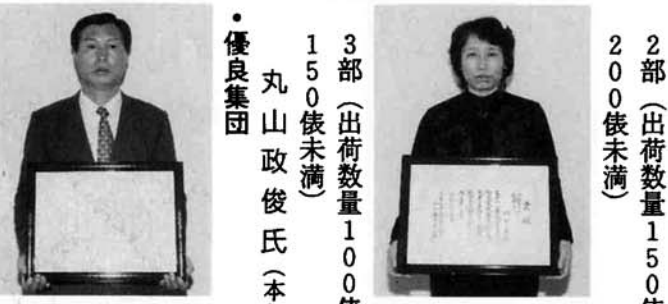 2部（出荷数量150俵
200俵未満）
3部（出荷数量100俵
150俵未満）
丸山政俊氏（本
・優良集団